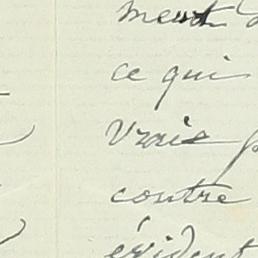 ment
ce qui
vrais
contre
évident